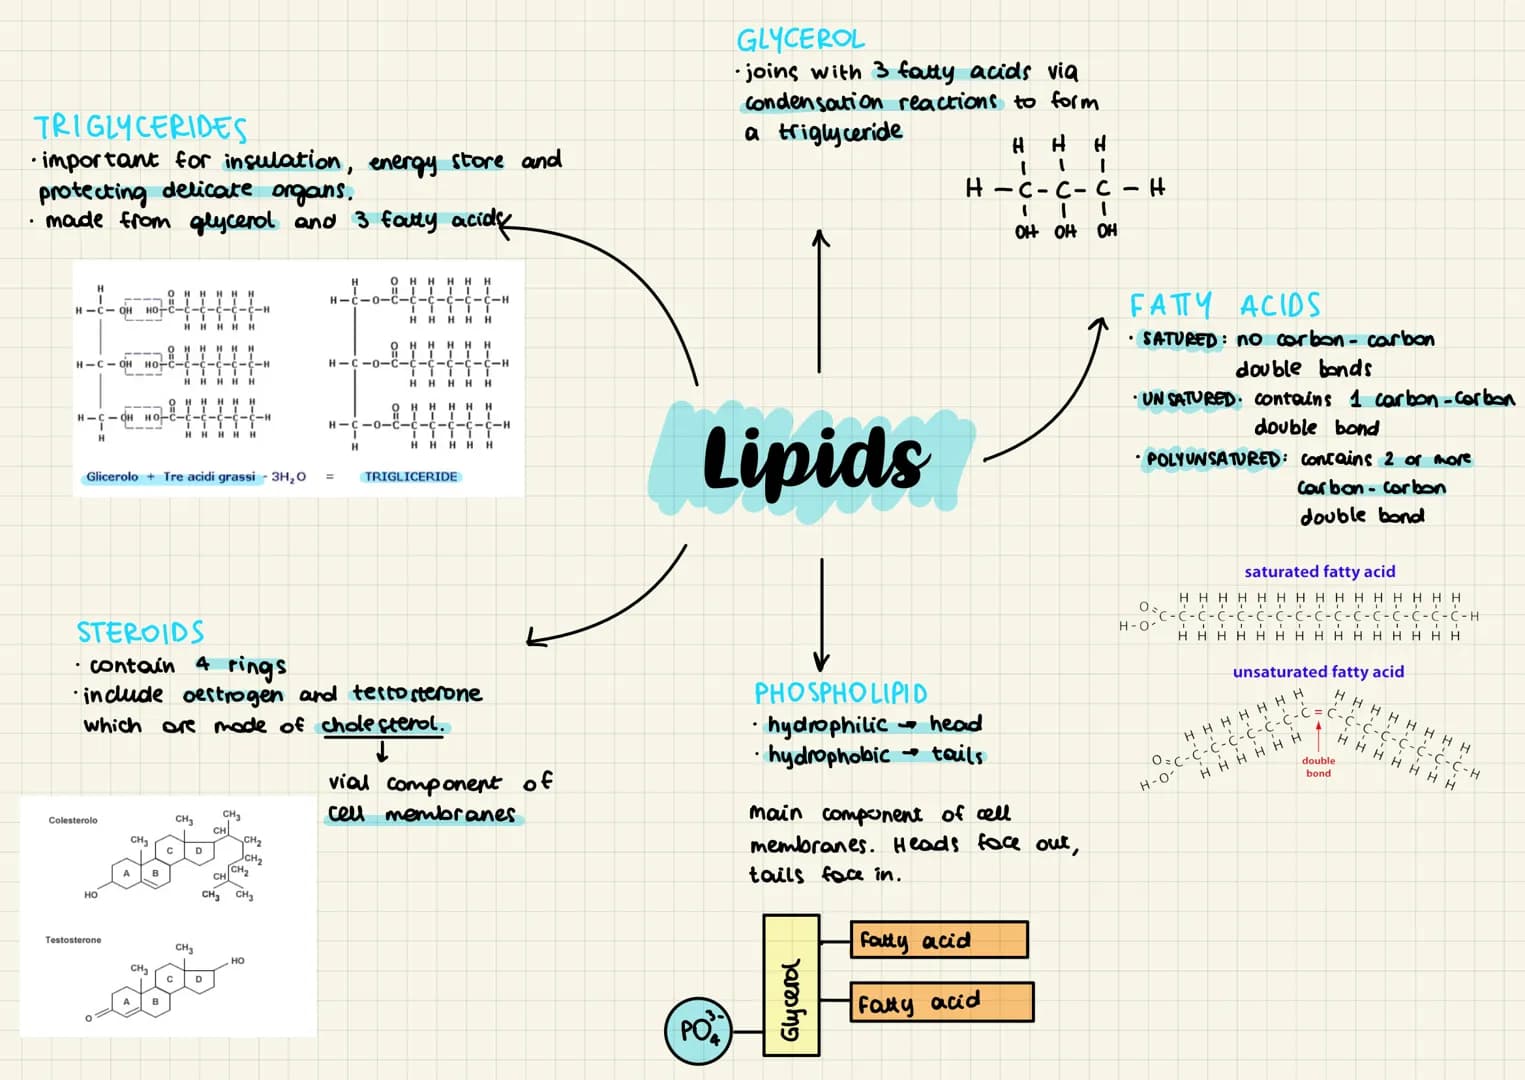 Lipids
GLYCEROL
· joins with 3 fatty acids via
condensation reactions to form
a triglyceride
H H H
H - C - C - C - H
OH OH OH
TRIGLYCERIDES
· important for insulation, energy store and
protecting delicate organs.
· made from glycerol and 3 fatty acids
H
O H H H H H
H-C-OH HO-C-C-C-C-C-C-H
H H H H H
O H H H H H
H-C-OH HO-C-C-C-C-C-C-H
H H H H H
O H H H H H
H-C-OH HO-C-C-C-C-C-C-H
H
H H H H H
H
O H H H H H
H-C-O-C-C-C-C-C-C-H
H H H H H
O H H H H H
H-C-O-C-C-C-C-C-C-H
H H H H H
O H H H H H
H-C-O-C-C-C-C-C-C-H
H
H H H H H
Glicerolo + Tre acidi grassi - 3H₂O = TRIGLICERIDE
FATTY ACIDS
· SATURED: no carbon-carbon
double bonds
· UNSATURED. contains 1 carbon-carbon
double bond
· POLYUNSATURED: contains 2 or more
carbon-carbon
double bond
saturated fatty acid
H H H H H H H H H H H H H H H
O=C-C-C-C-C-C-C-C-C-C-C-C-C-C-C-C-H
H-O
H H H H H H H H H H H H H H H
unsaturated fatty acid
H H H H H H H H H H H H H H H
O=C-C-C-C-C-C-C-C=C-C-C-C-C-C-C-C-H
H-O
H H H H H H H H H H H H H
double
bond
STEROIDS
· contain 4 rings
· include oestrogen and testosterone
which are made of cholesterol.
vial component of
cell membranes
Colesterolo
CH₃ CH₃
CH₃ CH CH₂
C D CH₂
A B CH CH₂
HO CH₃ CH₃
Testosterone
CH₃
CH₃ HO
C D
A B
O
PHOSPHOLIPID
· hydrophilic → head
· hydrophobic → tails
main component of cell
membranes. Heads face out,
tails face in.
fatty acid
Fatty acid
Glycerol
PO₄³⁻